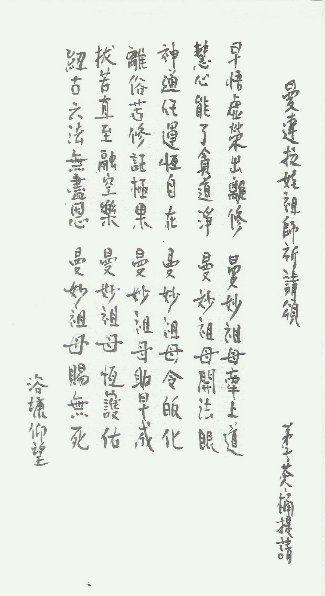 曼達拉娃祖師祈請頌
弟子提請
早悟虛榮出離修 曼妙祖母牽上道
慧心能了貪道淨 曼妙祖母開法眼
神通任運恆自在 曼妙祖母令皈化
離俗苦修証極果 曼妙祖母助早成
拔苦直至融空樂 曼妙祖母恆護佑
紐古六法無盡恩 曼妙祖母賜無死
仰望